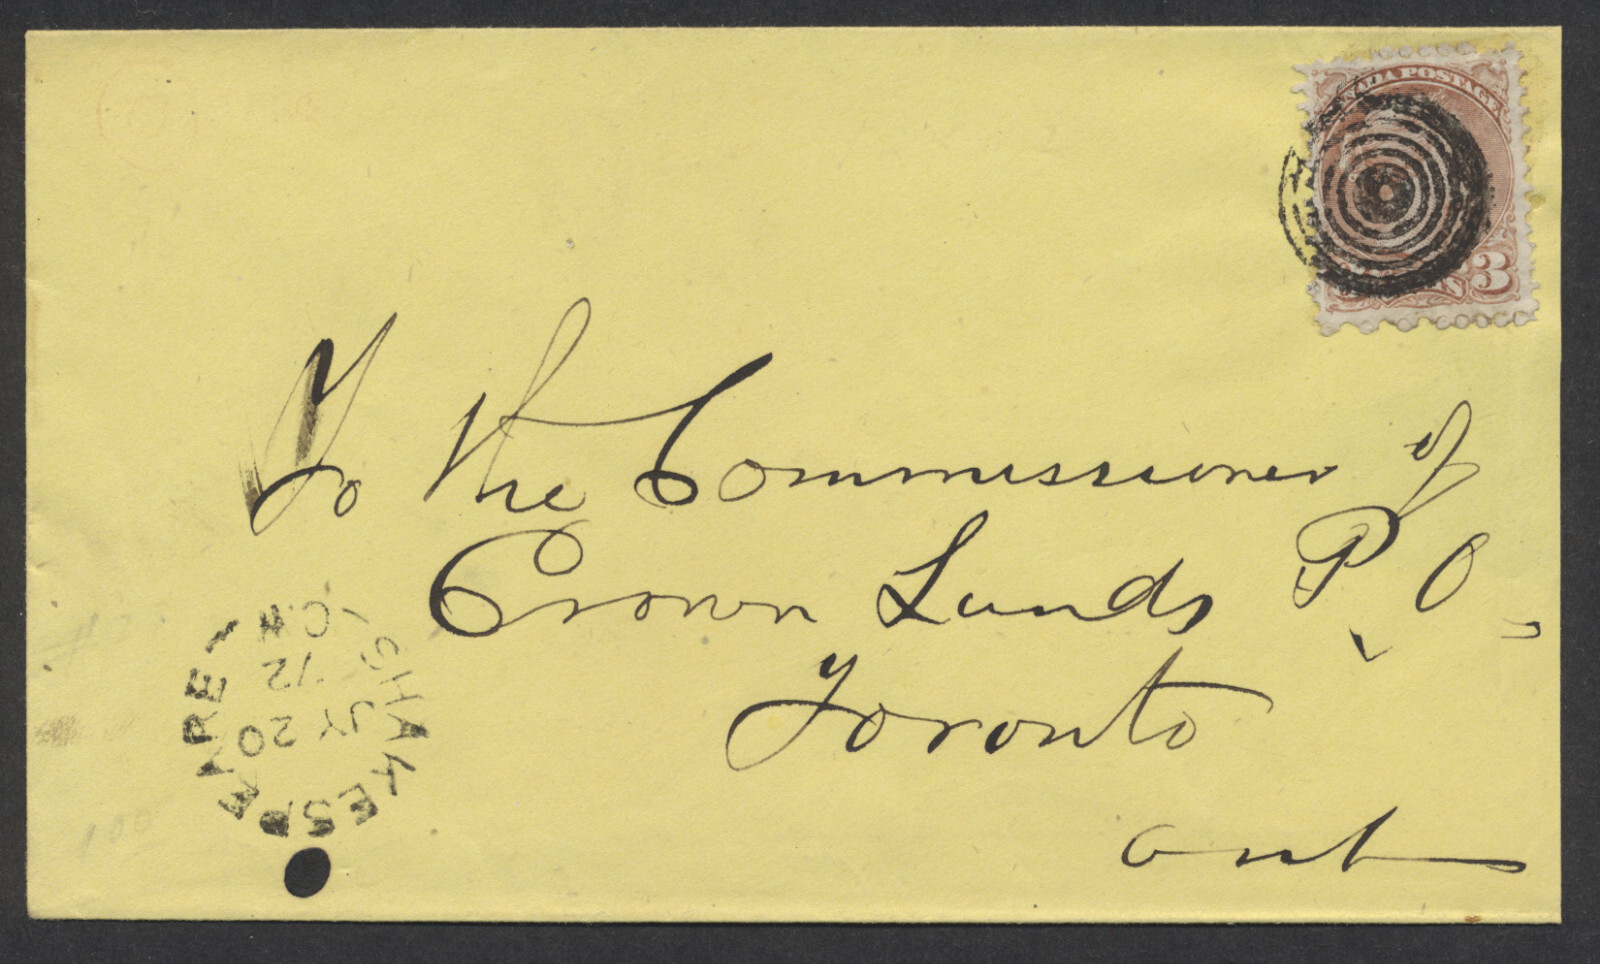 CANADA POSTAGE
3
To the Commissioner of
Crown Lands P. O.
Toronto
Ont
SHAKESPEARE
C.W
JY 20
72
100